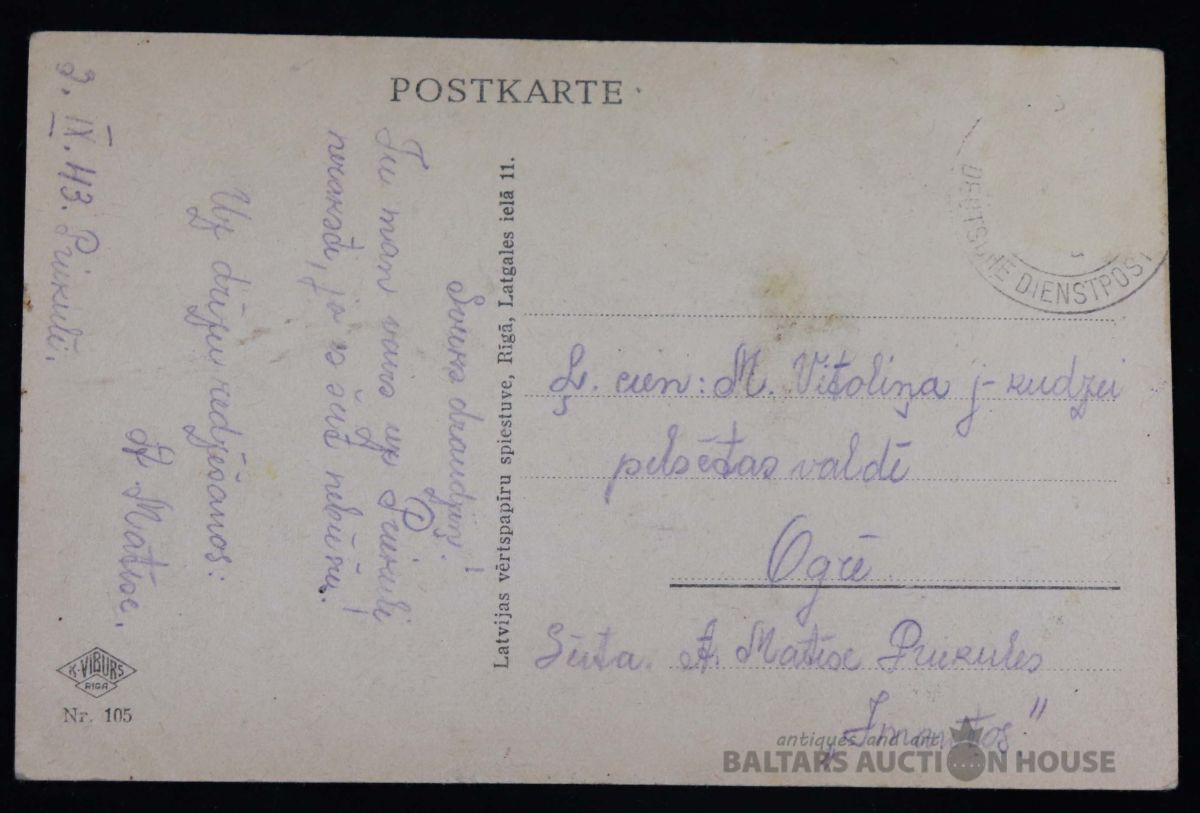 POSTKARTE
2. IX. 43. Priekuļi.
Sveiks draudziņ!
Tu man vairs uz Priekuli
neraksti, jo es šeit nebūšu.
Uz drīzu redzēšanos:
A. Matīse.
Latvijas vērtspapīru spiestuve, Rīgā, Latgales ielā 11.
DEUTSCHE DIENSTPOST
Ļ. cien: M. Vītoliņa j-kudzei
pilsētas valdē
Ogrē
Sūta. A. Matīse Priekules
„Imantos"
K. VIBURS
RIGA
Nr. 105
antiques and art
BALTARS AUCTION HOUSE